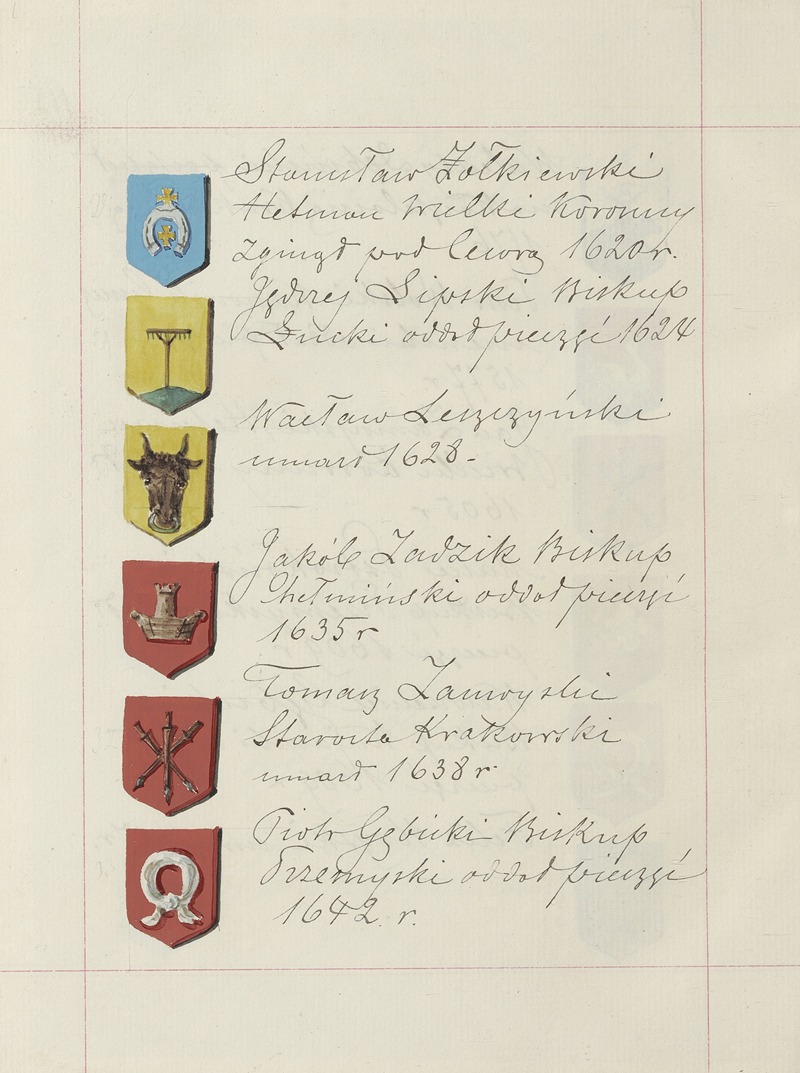 Stanisław Żołkiewski
Hetman Wielki Koronny
zginął pod Cecorą 1620 r.
Jędrzej Lipski Biskup
Łucki oddał pieczęć 1624
Wacław Leszczyński
umarł 1628 -
Jakób Zadzik Biskup
Chełmiński oddał pieczęć
1635 r
Tomasz Zamoyski
Starosta Krakowski
umarł 1638 r
Piotr Gębicki Biskup
Przemyski oddał pieczęć
1642. r.